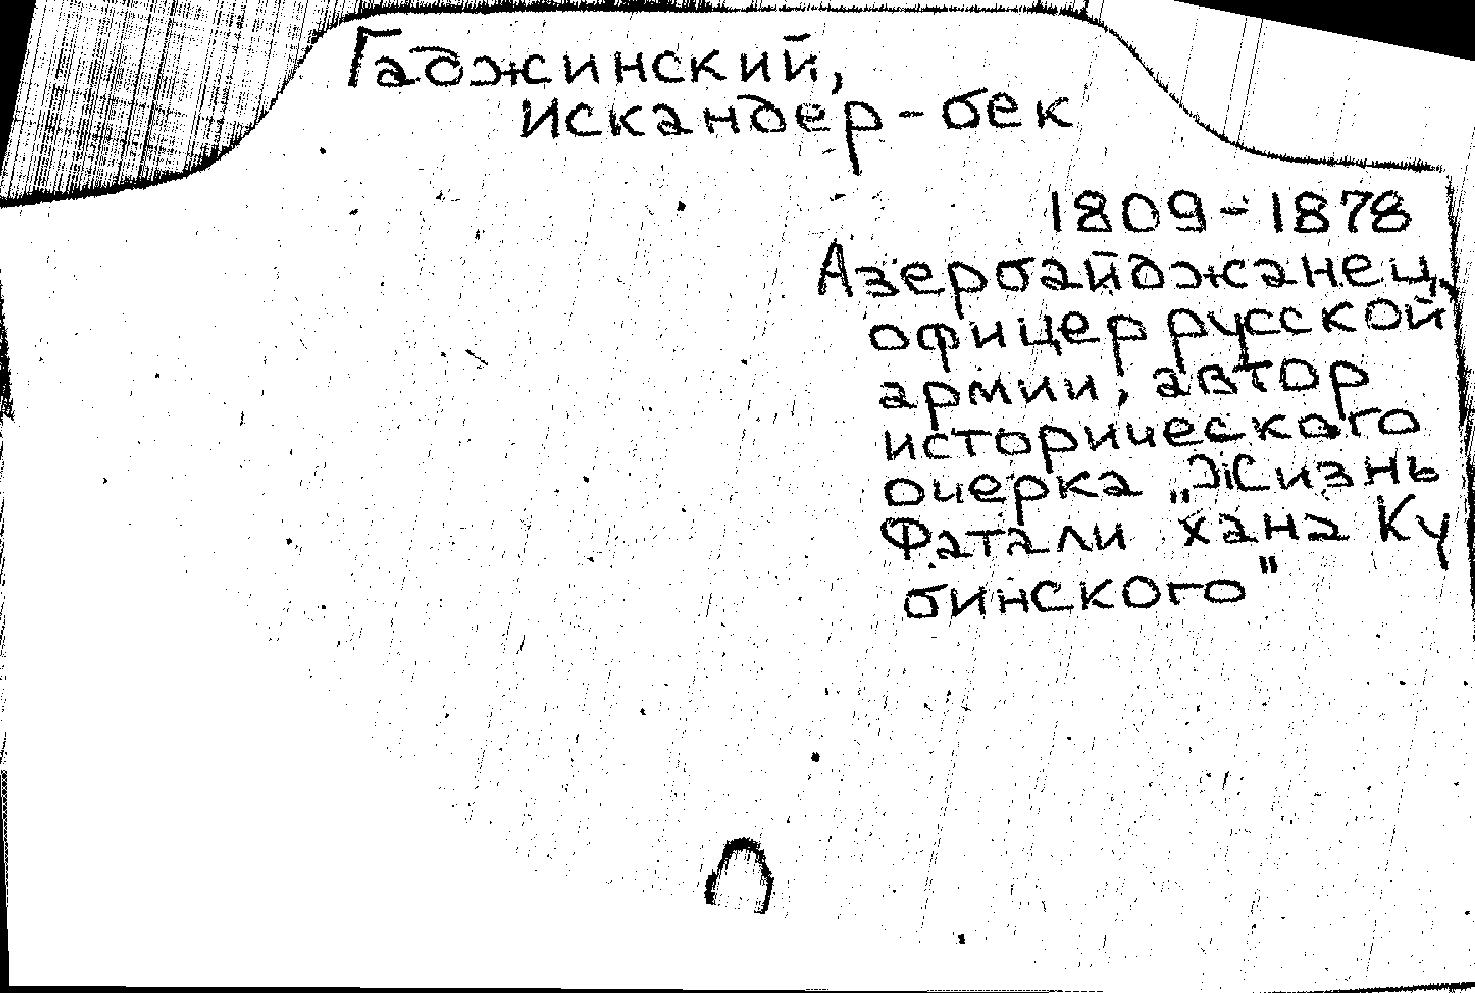 Гаджинский,
Искандер-бек
1809-1878
Азербайджанец,
офицер русской
армии, автор
исторического
очерка „Жизнь
Фатали хана Ку
бинского"